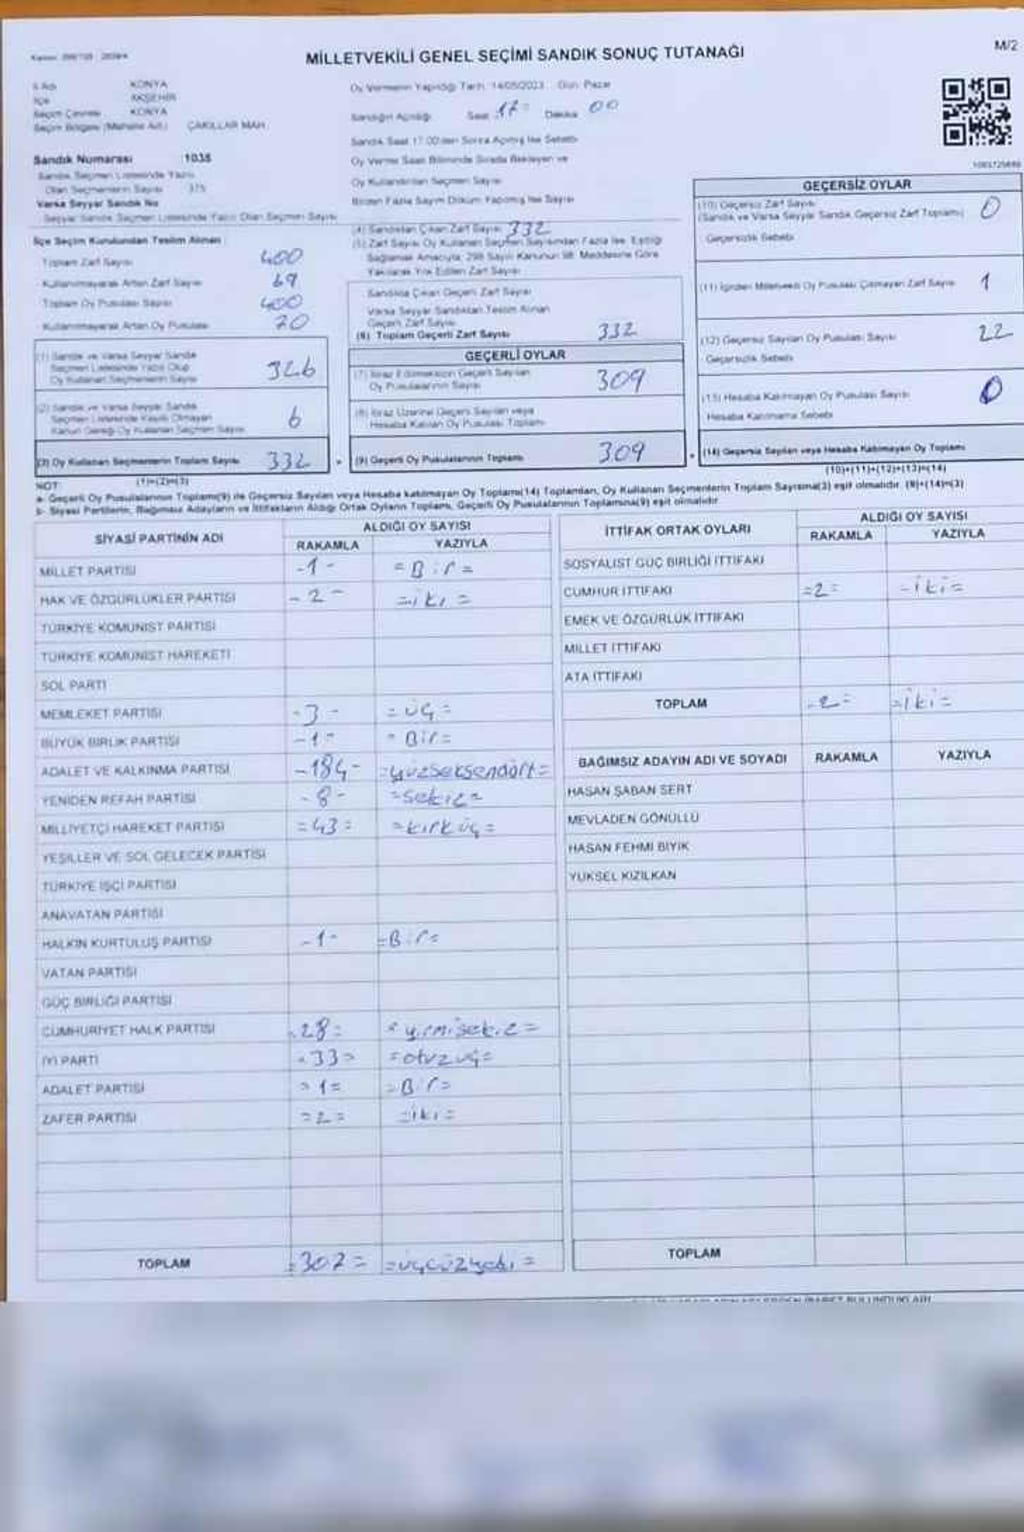 MİLLETVEKİLİ GENEL SEÇİMİ SANDIK SONUÇ TUTANAĞI
M/2
İl Adı KONYA
İlçe AKŞEHİR
Seçim Çevresi KONYA
Seçim Bölgesi (Mahalle Adı) ÇAKILLAR MAH.
Oy Vermenin Yapıldığı Tarih: 14/05/2023 Gün: Pazar
Sandığın Açıldığı Saat 17 Dakika 00
Sandık Saat 17:00'den Sonra Açılmış İse Sebebi
Oy Verme Saati Bitiminde Sırada Bekleyen ve
Oy Kullandırılan Seçmen Sayısı
Birden Fazla Sayım Döküm Yapılmış İse Sayısı
Sandık Numarası :1035
Sandık Seçmen Listesinde Yazılı
Olan Seçmenlerin Sayısı 375
Varsa Seyyar Sandık No
Seyyar Sandık Seçmen Listesinde Yazılı Olan Seçmen Sayısı
İlçe Seçim Kurulundan Teslim Alınan
Toplam Zarf Sayısı 400
Kullanılmayarak Artan Zarf Sayısı 69
Toplam Oy Pusulası Sayısı 400
Kullanılmayarak Artan Oy Pusulası 70
(1) Sandık ve Varsa Seyyar Sandık
Seçmen Listesinde Yazılı Olup
Oy Kullanan Seçmenlerin Sayısı 326
(2) Sandık ve Varsa Seyyar Sandık
Seçmen Listesinde Kayıtlı Olmayan
Kanun Gereği Oy Kullanan Seçmen Sayısı 6
(3) Oy Kullanan Seçmenlerin Toplam Sayısı 332
(1)+(2)=(3)
(4) Sandıktan Çıkan Zarf Sayısı 332
(5) Zarf Sayısı Oy Kullanan Seçmen Sayısından Fazla İse, Eşitliği
Sağlamak Amacıyla, 298 Sayılı Kanunun 98. Maddesine Göre
Yakılarak Yok Edilen Zarf Sayısı
Sandıkta Çıkan Geçerli Zarf Sayısı
Varsa Seyyar Sandıktan Teslim Alınan
Geçerli Zarf Sayısı
(6) Toplam Geçerli Zarf Sayısı 332
GEÇERLİ OYLAR
(7) İtiraz Edilmeksizin Geçerli Sayılan
Oy Pusulalarının Sayısı 309
(8) İtiraz Üzerine Geçerli Sayılan veya
Hesaba Katılan Oy Pusulaları Toplamı
(9) Geçerli Oy Pusulalarının Toplamı 309
GEÇERSİZ OYLAR
(10) Geçersiz Zarf Sayısı
(Sandık ve Varsa Seyyar Sandık Geçersiz Zarf Toplamı) 0
Geçersizlik Sebebi
(11) İçinden Milletvekili Oy Pusulası Çıkmayan Zarf Sayısı 1
(12) Geçersiz Sayılan Oy Pusulası Sayısı 22
Geçersizlik Sebebi
(13) Hesaba Katılmayan Oy Pusulası Sayısı 0
Hesaba Katılmama Sebebi
(14) Geçersiz Sayılan veya Hesaba Katılmayan Oy Toplamı
(10)+(11)+(12)+(13)=(14)
NOT:
a- Geçerli Oy Pusulalarının Toplamı(9) ile Geçersiz Sayılan veya Hesaba katılmayan Oy Toplamı(14) Toplamları, Oy Kullanan Seçmenlerin Toplam Sayısına(3) eşit olmalıdır. (9)+(14)=(3)
b- Siyasi Partilerin, Bağımsız Adayların ve İttifakların Aldığı Ortak Oyların Toplamı, Geçerli Oy Pusulalarının Toplamına(9) eşit olmalıdır.
SİYASİ PARTİNİN ADI ALDIĞI OY SAYISI
RAKAMLA YAZIYLA
MİLLET PARTİSİ -1- =Bir=
HAK VE ÖZGÜRLÜKLER PARTİSİ -2- =iki=
TÜRKİYE KOMÜNİST PARTİSİ
TÜRKİYE KOMÜNİST HAREKETİ
SOL PARTİ
MEMLEKET PARTİSİ -3- =üç=
BÜYÜK BİRLİK PARTİSİ -1- =Bir=
ADALET VE KALKINMA PARTİSİ -184- =yüzseksendört=
YENİDEN REFAH PARTİSİ -8- =sekiz=
MİLLİYETÇİ HAREKET PARTİSİ =43= =kırküç=
YEŞİLLER VE SOL GELECEK PARTİSİ
TÜRKİYE İŞÇİ PARTİSİ
ANAVATAN PARTİSİ
HALKIN KURTULUŞ PARTİSİ -1- =Bir=
VATAN PARTİSİ
GÜÇ BİRLİĞİ PARTİSİ
CUMHURİYET HALK PARTİSİ =28= =yirmisekiz=
İYİ PARTİ =33= =otuzüç=
ADALET PARTİSİ =1= =Bir=
ZAFER PARTİSİ =2= =iki=
TOPLAM =307= =üçyüzyedi=
İTTİFAK ORTAK OYLARI ALDIĞI OY SAYISI
RAKAMLA YAZIYLA
SOSYALİST GÜÇ BİRLİĞİ İTTİFAKI
CUMHUR İTTİFAKI =2= =iki=
EMEK VE ÖZGÜRLÜK İTTİFAKI
MİLLET İTTİFAKI
ATA İTTİFAKI
TOPLAM =2= =iki=
BAĞIMSIZ ADAYIN ADI VE SOYADI RAKAMLA YAZIYLA
HASAN ŞABAN SERT
MEVLADEN GÖNÜLLÜ
HASAN FEHMİ BIYIK
YÜKSEL KIZILKAN
TOPLAM